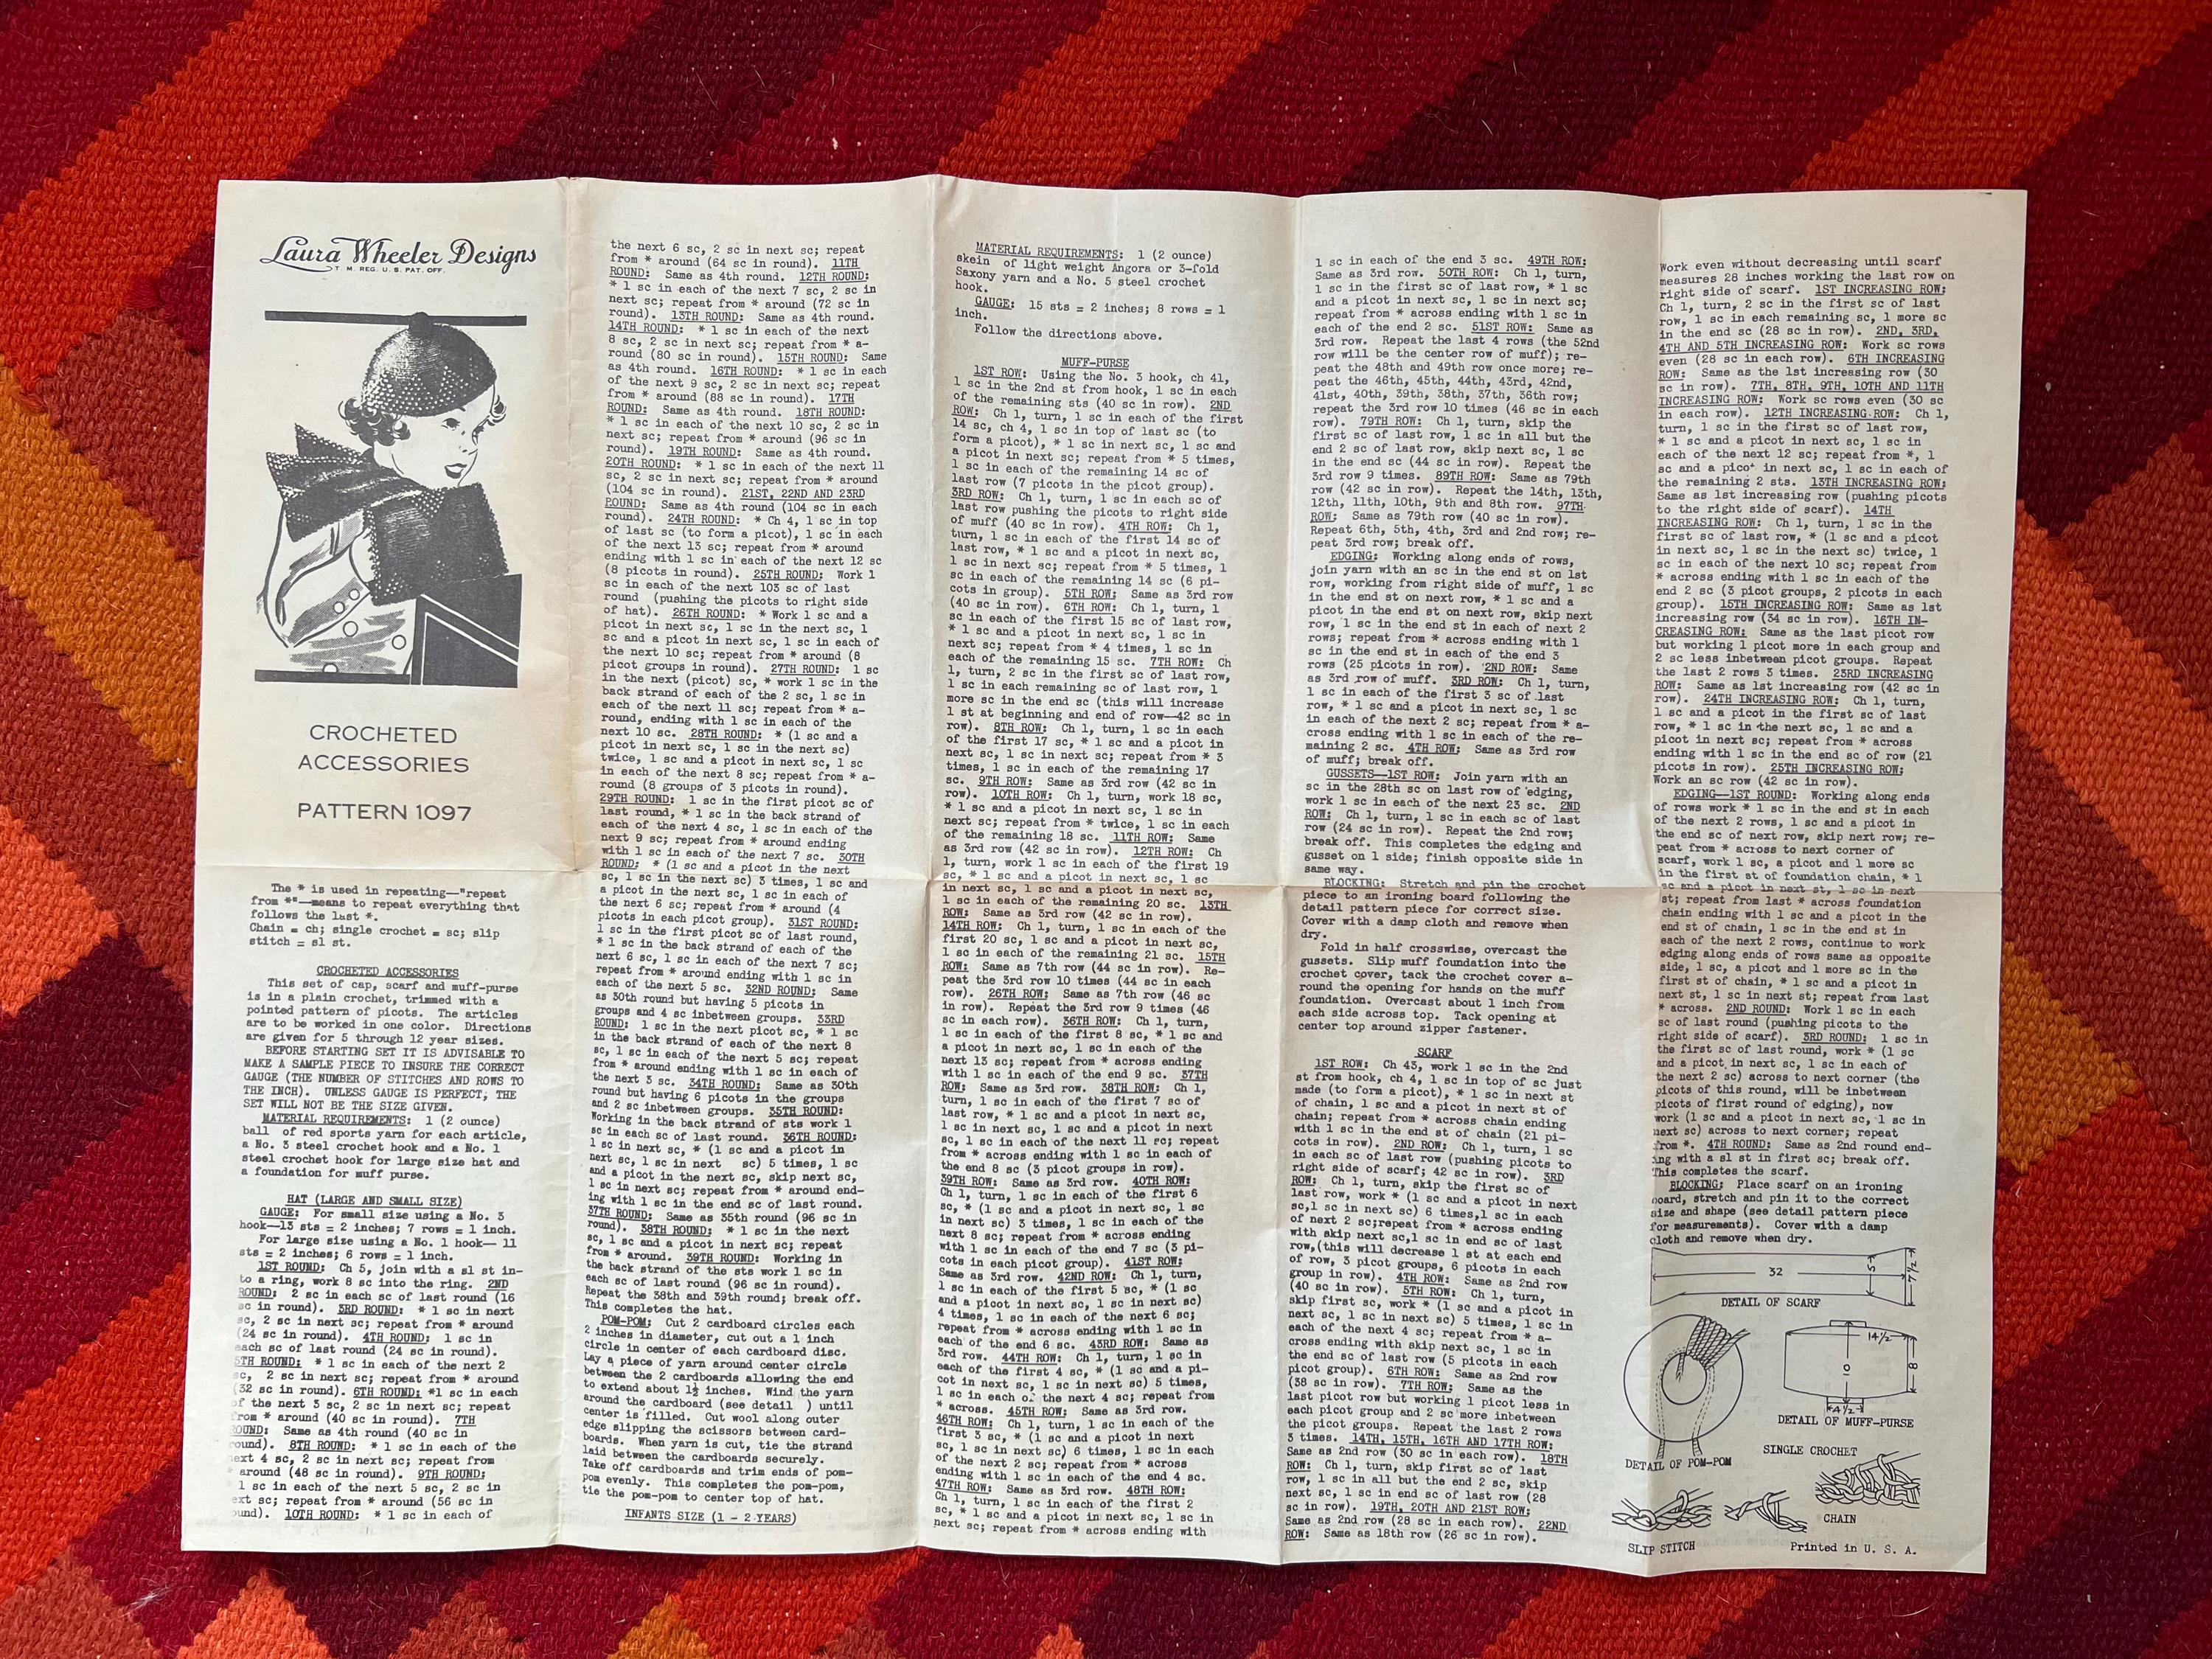 Laura Wheeler Designs
T. M. REG. U. S. PAT. OFF.
CROCHETED
ACCESSORIES
PATTERN 1097
The * is used in repeating—"repeat
from *"—means to repeat everything that
follows the last *.
Chain = ch; single crochet = sc; slip
stitch = sl st.
CROCHETED ACCESSORIES
This set of cap, scarf and muff-purse
is in a plain crochet, trimmed with a
pointed pattern of picots. The articles
are to be worked in one color. Directions
are given for 5 through 12 year sizes.
BEFORE STARTING SET IT IS ADVISABLE TO
MAKE A SAMPLE PIECE TO INSURE THE CORRECT
GAUGE (THE NUMBER OF STITCHES AND ROWS TO
THE INCH). UNLESS GAUGE IS PERFECT, THE
SET WILL NOT BE THE SIZE GIVEN.
MATERIAL REQUIREMENTS: 1 (2 ounce)
ball of red sports yarn for each article,
a No. 3 steel crochet hook and a No. 1
steel crochet hook for large size hat and
a foundation for muff purse.
HAT (LARGE AND SMALL SIZE)
GAUGE: For small size using a No. 3
hook—13 sts = 2 inches; 7 rows = 1 inch.
For large size using a No. 1 hook— 11
sts = 2 inches; 6 rows = 1 inch.
1ST ROUND: Ch 5, join with a sl st in-
to a ring, work 8 sc into the ring. 2ND
ROUND: 2 sc in each sc of last round (16
sc in round). 3RD ROUND: * 1 sc in next
sc, 2 sc in next sc; repeat from * around
(24 sc in round). 4TH ROUND: 1 sc in
each sc of last round (24 sc in round).
5TH ROUND: * 1 sc in each of the next 2
sc, 2 sc in next sc; repeat from * around
(32 sc in round). 6TH ROUND: *1 sc in each
of the next 3 sc, 2 sc in next sc; repeat
from * around (40 sc in round). 7TH
ROUND: Same as 4th round (40 sc in
round). 8TH ROUND: * 1 sc in each of the
next 4 sc, 2 sc in next sc; repeat from
* around (48 sc in round). 9TH ROUND:
* 1 sc in each of the next 5 sc, 2 sc in
next sc; repeat from * around (56 sc in
round). 10TH ROUND: * 1 sc in each of
the next 6 sc, 2 sc in next sc; repeat
from * around (64 sc in round). 11TH
ROUND: Same as 4th round. 12TH ROUND:
* 1 sc in each of the next 7 sc, 2 sc in
next sc; repeat from * around (72 sc in
round). 13TH ROUND: Same as 4th round.
14TH ROUND: * 1 sc in each of the next
8 sc, 2 sc in next sc; repeat from * a-
round (80 sc in round). 15TH ROUND: Same
as 4th round. 16TH ROUND: * 1 sc in each
of the next 9 sc, 2 sc in next sc; repeat
from * around (88 sc in round). 17TH
ROUND: Same as 4th round. 18TH ROUND:
* 1 sc in each of the next 10 sc, 2 sc in
next sc; repeat from * around (96 sc in
round). 19TH ROUND: Same as 4th round.
20TH ROUND: * 1 sc in each of the next 11
sc, 2 sc in next sc; repeat from * around
(104 sc in round). 21ST, 22ND AND 23RD
ROUND: Same as 4th round (104 sc in each
round). 24TH ROUND: * Ch 4, 1 sc in top
of last sc (to form a picot), 1 sc in each
of the next 13 sc; repeat from * around
ending with 1 sc in each of the next 12 sc
(8 picots in round). 25TH ROUND: Work 1
sc in each of the next 103 sc of last
round (pushing the picots to right side
of hat). 26TH ROUND: * Work 1 sc and a
picot in next sc, 1 sc in the next sc, 1
sc and a picot in next sc, 1 sc in each of
the next 10 sc; repeat from * around (8
picot groups in round). 27TH ROUND: 1 sc
in the next (picot) sc, * work 1 sc in the
back strand of each of the 2 sc, 1 sc in
each of the next 11 sc; repeat from * a-
round, ending with 1 sc in each of the
next 10 sc. 28TH ROUND: * (1 sc and a
picot in next sc, 1 sc in the next sc)
twice, 1 sc and a picot in next sc, 1 sc
in each of the next 8 sc; repeat from * a-
round (8 groups of 3 picots in round).
29TH ROUND: 1 sc in the first picot sc of
last round, * 1 sc in the back strand of
each of the next 4 sc, 1 sc in each of the
next 9 sc; repeat from * around ending
with 1 sc in each of the next 7 sc. 30TH
ROUND: * (1 sc and a picot in the next
sc, 1 sc in the next sc) 3 times, 1 sc and
a picot in the next sc, 1 sc in each of
the next 6 sc; repeat from * around (4
picots in each picot group). 31ST ROUND:
1 sc in the first picot sc of last round,
* 1 sc in the back strand of each of the
next 6 sc, 1 sc in each of the next 7 sc;
repeat from * around ending with 1 sc in
each of the next 5 sc. 32ND ROUND: Same
as 30th round but having 5 picots in
groups and 4 sc inbetween groups. 33RD
ROUND: 1 sc in the next picot sc, * 1 sc
in the back strand of each of the next 8
sc, 1 sc in each of the next 5 sc; repeat
from * around ending with 1 sc in each of
the next 3 sc. 34TH ROUND: Same as 30th
round but having 6 picots in the groups
and 2 sc inbetween groups. 35TH ROUND:
Working in the back strand of sts work 1
sc in each sc of last round. 36TH ROUND:
1 sc in next sc, * (1 sc and a picot in
next sc, 1 sc in next sc) 5 times, 1 sc
and a picot in the next sc, skip next sc,
1 sc in next sc; repeat from * around end-
ing with 1 sc in the end sc of last round.
37TH ROUND: Same as 35th round (96 sc in
round). 38TH ROUND: * 1 sc in the next
sc, 1 sc and a picot in next sc; repeat
from * around. 39TH ROUND: Working in
the back strand of the sts work 1 sc in
each sc of last round (96 sc in round).
Repeat the 38th and 39th round; break off.
This completes the hat.
POM-POM: Cut 2 cardboard circles each
2 inches in diameter, cut out a 1 inch
circle in center of each cardboard disc.
Lay a piece of yarn around center circle
between the 2 cardboards allowing the end
to extend about 1½ inches. Wind the yarn
around the cardboard (see detail ) until
center is filled. Cut wool along outer
edge slipping the scissors between card-
boards. When yarn is cut, tie the strand
laid between the cardboards securely.
Take off cardboards and trim ends of pom-
pom evenly. This completes the pom-pom,
tie the pom-pom to center top of hat.
INFANTS SIZE (1 - 2 YEARS)
MATERIAL REQUIREMENTS: 1 (2 ounce)
skein of light weight Angora or 3-fold
Saxony yarn and a No. 5 steel crochet
hook.
GAUGE: 15 sts = 2 inches; 8 rows = 1
inch.
Follow the directions above.
MUFF-PURSE
1ST ROW: Using the No. 3 hook, ch 41,
1 sc in the 2nd st from hook, 1 sc in each
of the remaining sts (40 sc in row). 2ND
ROW: Ch 1, turn, 1 sc in each of the first
14 sc, ch 4, 1 sc in top of last sc (to
form a picot), * 1 sc in next sc, 1 sc and
a picot in next sc; repeat from * 5 times,
1 sc in each of the remaining 14 sc of
last row (7 picots in the picot group).
3RD ROW: Ch 1, turn, 1 sc in each sc of
last row pushing the picots to right side
of muff (40 sc in row). 4TH ROW: Ch 1,
turn, 1 sc in each of the first 14 sc of
last row, * 1 sc and a picot in next sc,
1 sc in next sc; repeat from * 5 times, 1
sc in each of the remaining 14 sc (6 pi-
cots in group). 5TH ROW: Same as 3rd row
(40 sc in row). 6TH ROW: Ch 1, turn, 1
sc in each of the first 15 sc of last row,
* 1 sc and a picot in next sc, 1 sc in
next sc; repeat from * 4 times, 1 sc in
each of the remaining 15 sc. 7TH ROW: Ch
1, turn, 2 sc in the first sc of last row,
1 sc in each remaining sc of last row, 1
more sc in the end sc (this will increase
1 st at beginning and end of row—42 sc in
row). 8TH ROW: Ch 1, turn, 1 sc in each
of the first 17 sc, * 1 sc and a picot in
next sc, 1 sc in next sc; repeat from * 3
times, 1 sc in each of the remaining 17
sc. 9TH ROW: Same as 3rd row (42 sc in
row). 10TH ROW: Ch 1, turn, work 18 sc,
* 1 sc and a picot in next sc, 1 sc in
next sc; repeat from * twice, 1 sc in each
of the remaining 18 sc. 11TH ROW: Same
as 3rd row (42 sc in row). 12TH ROW: Ch
1, turn, work 1 sc in each of the first 19
sc, * 1 sc and a picot in next sc, 1 sc
in next sc, 1 sc and a picot in next sc,
1 sc in each of the remaining 20 sc. 13TH
ROW: Same as 3rd row (42 sc in row).
14TH ROW: Ch 1, turn, 1 sc in each of the
first 20 sc, 1 sc and a picot in next sc,
1 sc in each of the remaining 21 sc. 15TH
ROW: Same as 7th row (44 sc in row). Re-
peat the 3rd row 10 times (44 sc in each
row). 26TH ROW: Same as 7th row (46 sc
in row). Repeat the 3rd row 9 times (46
sc in each row). 36TH ROW: Ch 1, turn,
1 sc in each of the first 8 sc, * 1 sc and
a picot in next sc, 1 sc in each of the
next 13 sc; repeat from * across ending
with 1 sc in each of the end 9 sc. 37TH
ROW: Same as 3rd row. 38TH ROW: Ch 1,
turn, 1 sc in each of the first 7 sc of
last row, * 1 sc and a picot in next sc,
1 sc in next sc, 1 sc and a picot in next
sc, 1 sc in each of the next 11 sc; repeat
from * across ending with 1 sc in each of
the end 8 sc (3 picot groups in row).
39TH ROW: Same as 3rd row. 40TH ROW:
Ch 1, turn, 1 sc in each of the first 6
sc, * (1 sc and a picot in next sc, 1 sc
in next sc) 3 times, 1 sc in each of the
next 8 sc; repeat from * across ending
with 1 sc in each of the end 7 sc (3 pi-
cots in each picot group). 41ST ROW:
Same as 3rd row. 42ND ROW: Ch 1, turn,
1 sc in each of the first 5 sc, * (1 sc
and a picot in next sc, 1 sc in next sc)
4 times, 1 sc in each of the next 6 sc;
repeat from * across ending with 1 sc in
each of the end 6 sc. 43RD ROW: Same as
3rd row. 44TH ROW: Ch 1, turn, 1 sc in
each of the first 4 sc, * (1 sc and a pi-
cot in next sc, 1 sc in next sc) 5 times,
1 sc in each of the next 4 sc; repeat from
* across. 45TH ROW: Same as 3rd row.
46TH ROW: Ch 1, turn, 1 sc in each of the
first 3 sc, * (1 sc and a picot in next
sc, 1 sc in next sc) 6 times, 1 sc in each
of the next 2 sc; repeat from * across
ending with 1 sc in each of the end 4 sc.
47TH ROW: Same as 3rd row. 48TH ROW:
Ch 1, turn, 1 sc in each of the first 2
sc, * 1 sc and a picot in next sc, 1 sc in
next sc; repeat from * across ending with
1 sc in each of the end 3 sc. 49TH ROW:
Same as 3rd row. 50TH ROW: Ch 1, turn,
1 sc in the first sc of last row, * 1 sc
and a picot in next sc, 1 sc in next sc;
repeat from * across ending with 1 sc in
each of the end 2 sc. 51ST ROW: Same as
3rd row. Repeat the last 4 rows (the 52nd
row will be the center row of muff); re-
peat the 48th and 49th row once more; re-
peat the 46th, 45th, 44th, 43rd, 42nd,
41st, 40th, 39th, 38th, 37th, 36th row;
repeat the 3rd row 10 times (46 sc in each
row). 79TH ROW: Ch 1, turn, skip the
first sc of last row, 1 sc in all but the
end 2 sc of last row, skip next sc, 1 sc
in the end sc (44 sc in row). Repeat the
3rd row 9 times. 89TH ROW: Same as 79th
row (42 sc in row). Repeat the 14th, 13th,
12th, 11th, 10th, 9th and 8th row. 97TH
ROW: Same as 79th row (40 sc in row).
Repeat 6th, 5th, 4th, 3rd and 2nd row; re-
peat 3rd row; break off.
EDGING: Working along ends of rows,
join yarn with an sc in the end st on 1st
row, working from right side of muff, 1 sc
in the end st on next row, * 1 sc and a
picot in the end st on next row, skip next
row, 1 sc in the end st in each of next 2
rows; repeat from * across ending with 1
sc in the end st in each of the end 3
rows (25 picots in row). 2ND ROW: Same
as 3rd row of muff. 3RD ROW: Ch 1, turn,
1 sc in each of the first 3 sc of last
row, * 1 sc and a picot in next sc, 1 sc
in each of the next 2 sc; repeat from * a-
cross ending with 1 sc in each of the re-
maining 2 sc. 4TH ROW: Same as 3rd row
of muff; break off.
GUSSETS—1ST ROW: Join yarn with an
sc in the 28th sc on last row of edging,
work 1 sc in each of the next 23 sc. 2ND
ROW: Ch 1, turn, 1 sc in each sc of last
row (24 sc in row). Repeat the 2nd row;
break off. This completes the edging and
gusset on 1 side; finish opposite side in
same way.
BLOCKING: Stretch and pin the crochet
piece to an ironing board following the
detail pattern piece for correct size.
Cover with a damp cloth and remove when
dry.
Fold in half crosswise, overcast the
gussets. Slip muff foundation into the
crochet cover, tack the crochet cover a-
round the opening for hands on the muff
foundation. Overcast about 1 inch from
each side across top. Tack opening at
center top around zipper fastener.
SCARF
1ST ROW: Ch 43, work 1 sc in the 2nd
st from hook, ch 4, 1 sc in top of sc just
made (to form a picot), * 1 sc in next st
of chain, 1 sc and a picot in next st of
chain; repeat from * across chain ending
with 1 sc in the end st of chain (21 pi-
cots in row). 2ND ROW: Ch 1, turn, 1 sc
in each sc of last row (pushing picots to
right side of scarf; 42 sc in row). 3RD
ROW: Ch 1, turn, skip the first sc of
last row, work * (1 sc and a picot in next
sc,1 sc in next sc) 6 times,1 sc in each
of next 2 sc;repeat from * across ending
with skip next sc,1 sc in end sc of last
row,(this will decrease 1 st at each end
of row, 3 picot groups, 6 picots in each
group in row). 4TH ROW: Same as 2nd row
(40 sc in row). 5TH ROW: Ch 1, turn,
skip first sc, work * (1 sc and a picot in
next sc, 1 sc in next sc) 5 times, 1 sc in
each of the next 4 sc; repeat from * a-
cross ending with skip next sc, 1 sc in
the end sc of last row (5 picots in each
picot group). 6TH ROW: Same as 2nd row
(38 sc in row). 7TH ROW: Same as the
last picot row but working 1 picot less in
each picot group and 2 sc more inbetween
the picot groups. Repeat the last 2 rows
3 times. 14TH, 15TH, 16TH AND 17TH ROW:
Same as 2nd row (30 sc in each row). 18TH
ROW: Ch 1, turn, skip first sc of last
row, 1 sc in all but the end 2 sc, skip
next sc, 1 sc in end sc of last row (28
sc in row). 19TH, 20TH AND 21ST ROW:
Same as 2nd row (28 sc in each row). 22ND
ROW: Same as 18th row (26 sc in row).
Work even without decreasing until scarf
measures 28 inches working the last row on
right side of scarf. 1ST INCREASING ROW:
Ch 1, turn, 2 sc in the first sc of last
row, 1 sc in each remaining sc, 1 more sc
in the end sc (28 sc in row). 2ND, 3RD,
4TH AND 5TH INCREASING ROW: Work sc rows
even (28 sc in each row). 6TH INCREASING
ROW: Same as the 1st increasing row (30
sc in row). 7TH, 8TH, 9TH, 10TH AND 11TH
INCREASING ROW: Work sc rows even (30 sc
in each row). 12TH INCREASING ROW: Ch 1,
turn, 1 sc in the first sc of last row,
* 1 sc and a picot in next sc, 1 sc in
each of the next 12 sc; repeat from *, 1
sc and a picot in next sc, 1 sc in each of
the remaining 2 sts. 13TH INCREASING ROW:
Same as 1st increasing row (pushing picots
to the right side of scarf). 14TH
INCREASING ROW: Ch 1, turn, 1 sc in the
first sc of last row, * (1 sc and a picot
in next sc, 1 sc in next sc) twice, 1
sc in each of the next 10 sc; repeat from
* across ending with 1 sc in each of the
end 2 sc (3 picot groups, 2 picots in each
group). 15TH INCREASING ROW: Same as 1st
increasing row (34 sc in row). 16TH IN-
CREASING ROW: Same as the last picot row
but working 1 picot more in each group and
2 sc less inbetween picot groups. Repeat
the last 2 rows 3 times. 23RD INCREASING
ROW: Same as 1st increasing row (42 sc in
row). 24TH INCREASING ROW: Ch 1, turn,
1 sc and a picot in the first sc of last
row, * 1 sc in the next sc, 1 sc and a
picot in next sc; repeat from * across
ending with 1 sc in the end sc of row (21
picots in row). 25TH INCREASING ROW:
Work an sc row (42 sc in row).
EDGING—1ST ROUND: Working along ends
of rows work * 1 sc in the end st in each
of the next 2 rows, 1 sc and a picot in
the end sc of next row, skip next row; re-
peat from * across to next corner of
scarf, work 1 sc, a picot and 1 more sc
in the first st of foundation chain, * 1
sc and a picot in next st, 1 sc in next
st; repeat from last * across foundation
chain ending with 1 sc and a picot in the
end st of chain, 1 sc in the end st in
each of the next 2 rows, continue to work
edging along ends of rows same as opposite
side, 1 sc, a picot and 1 more sc in the
first st of chain, * 1 sc and a picot in
next st, 1 sc in next st; repeat from last
* across. 2ND ROUND: Work 1 sc in each
sc of last round (pushing the picots to the
right side of scarf). 3RD ROUND: 1 sc in
the first sc of last round, work * (1 sc
and a picot in next sc, 1 sc in each of
the next 2 sc) across to next corner (the
picots of this round, will be inbetween
picots of first round of edging), now
work (1 sc and a picot in next sc, 1 sc in
next sc) across to next corner; repeat
from *. 4TH ROUND: Same as 2nd round end-
ing with a sl st in first sc; break off.
This completes the scarf.
BLOCKING: Place scarf on an ironing
board, stretch and pin it to the correct
size and shape (see detail pattern piece
for measurements). Cover with a damp
cloth and remove when dry.
32
5
7 1/2
DETAIL OF SCARF
14 1/2
10
8
4 1/2
DETAIL OF MUFF-PURSE
DETAIL OF POM-POM
SINGLE CROCHET
CHAIN
SLIP STITCH
Printed in U. S. A.